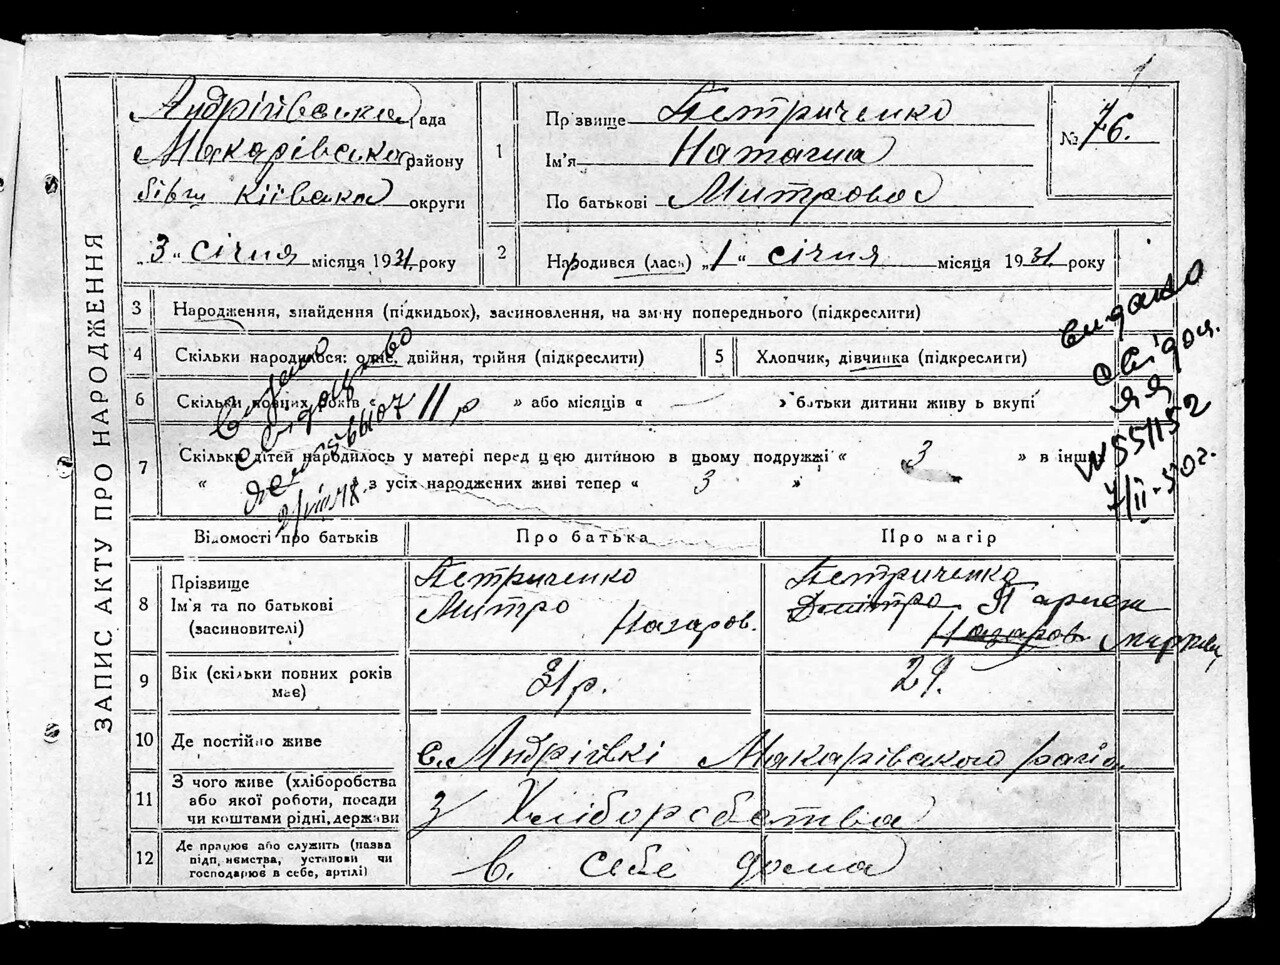 ЗАПИС АКТУ ПРО НАРОДЖЕННЯ
Андрійвська рада
Макарівська району
Київска округи
3 " січня місяця 1931 року
1 Прізвище Петриченко
Ім'я Наталия
По батькові Митрова
№ 76.
2 Народився (лась) „1 " січня місяця 1931 року
3 Народження, знайдення (підкидьох), засиновлення, на зміну попереднього (підкреслити)
4 Скільки народилося: одне, двійня, трійня (підкреслити)
5 Хлопчик, дівчинка (підкреслити)
6 Скільки повних років « 11 р » або місяців « » батьки дитини живуть вкупі
7 Скільки дітей народилось у матері перед цією дитиною в цьому подружжі « 3 » в інших
« з усіх народжених живі тепер « 3 »
Видано
свідоцтво
566107
2/VIII 48.
видано
свідоц.
яя
№ 551152
7/II-50г.
Відомості про батьків Про батька Про матір
8 Прізвище
Ім'я та по батькові
(засиновителі)
Петриченко
Митро
Назаров.
Петриченко
Дмитро
Назаров
9 Вік (скільки повних років
має)
31 р. 29.
10 Де постійно живе с. Андріївкі Макарівського
11 З чого живе (хліборобства
або якої роботи, посади
чи коштами рідні, держави
з Хліборобства
12 Де працює або служить (назва
підприємства, установи чи
господарює в себе, артілі)
в. себе дома